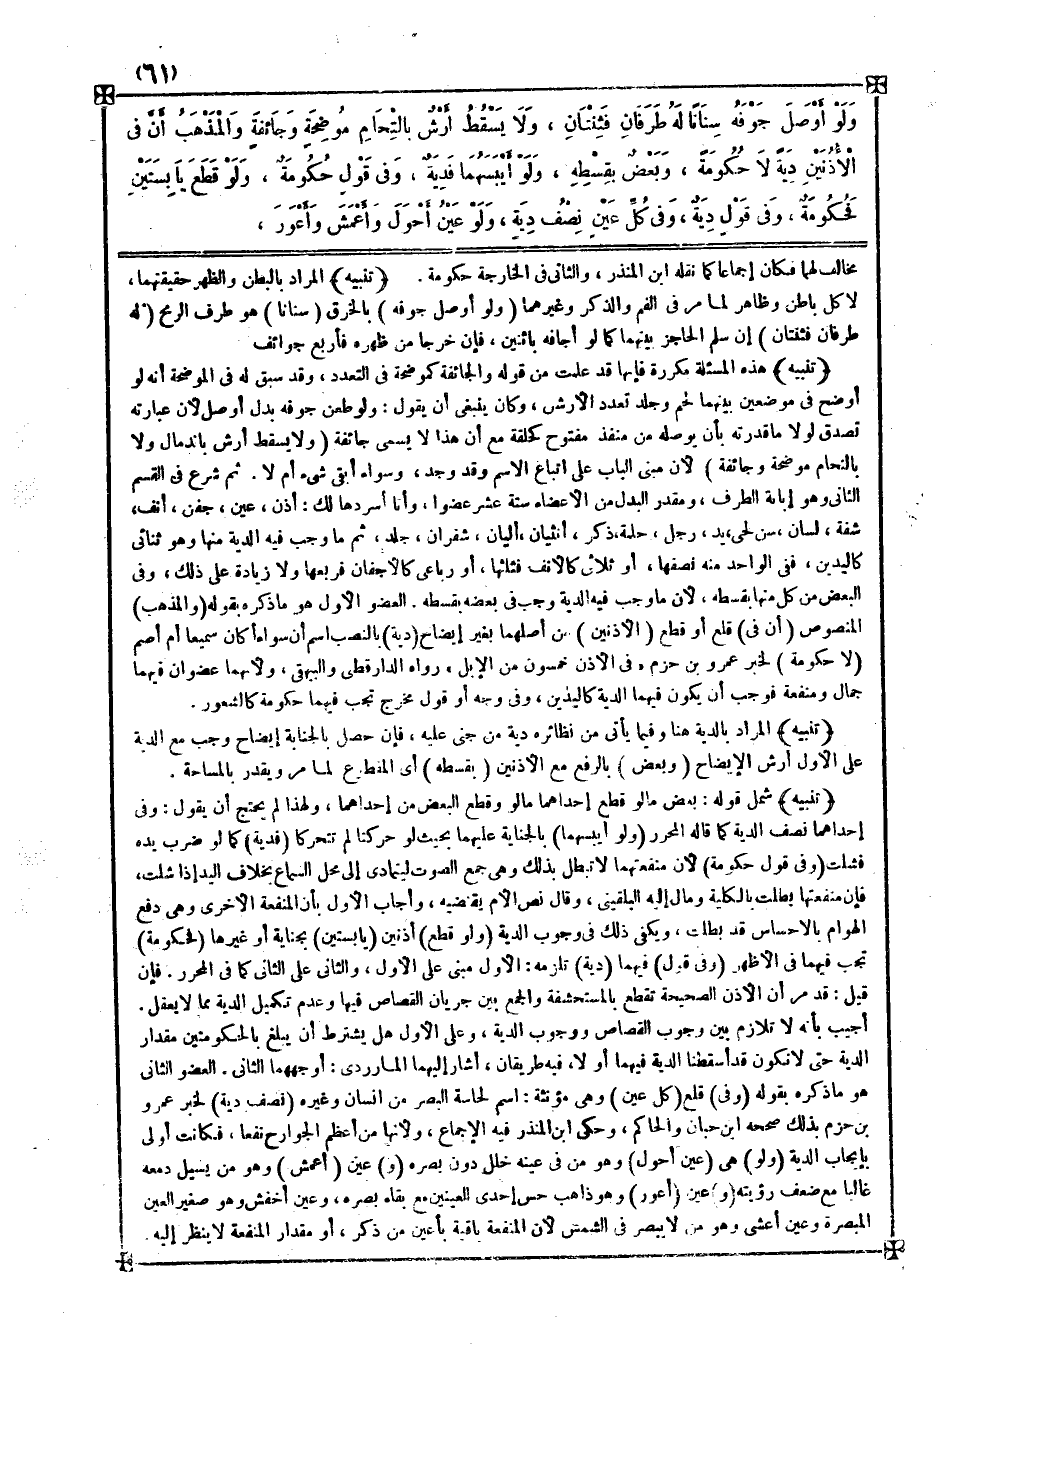 (٦١)
وَلَوْ أَوْصَلَ جَوْفَهُ سِنَانًا لَهُ طَرَفَانِ فَثِنْتَانِ ، وَلَا يَسْقُطُ أَرْشٌ بِالْتِحَامِ مُوضِحَةٍ وَجَائِفَةٍ وَالْمَذْهَبُ أَنَّ فِى
الْأُذُنَيْنِ دِيَةً لَا حُكُومَةً ، وَبَعْضٌ بِقِسْطِهِ ، وَلَوْ أَيْبَسَهُمَا فَدِيَةٌ ، وَفِى قَوْلٍ حُكُومَةٌ ، وَلَوْ قَطَعَ يَابِسَتَيْنِ
فَحُكُومَةٌ ، وَفِى قَوْلٍ دِيَةٌ ، وَفِى كُلِّ عَيْنٍ نِصْفُ دِيَةٍ ، وَلَوْ عَيْنُ أَحْوَلَ وَأَعْمَشَ وَأَعْوَرَ ،
مخالف لهما فكان إجماعا كما نقله ابن المنذر ، والثانى فى الخارجة حكومة . ﴿ تنبيه ﴾ المراد بالبطن والظهر حقيقتهما ،
لا كل باطن وظاهر لما مر فى الفم والذكر وغيرهما ( ولو أوصل جوفه ) بالخرق ( سنانا ) هو طرف الرمح ( له
طرفان فثنتان ) إن سلم الحاجز بينهما كما لو أجافه باثنين ، فإن خرجا من ظهره فأربع جوائف
﴿ تنبيه ﴾ هذه المسئلة مكررة فإنها قد علمت من قوله والجائفة كموضحة فى التعدد ، وقد سبق له فى الموضحة أنه لو
أوضح فى موضعين بينهما لحم وجلد تعدد الأرش ، وكان ينبغى أن يقول : ولو طعن جوفه بدل أوصل لأن عبارته
تصدق لولا ما قدرته بأن يوصله من منفذ مفتوح كحلقة مع أن هذا لا يسمى جائفة ( ولا يسقط أرش باندمال ولا
بالتحام موضحة وجائفة ) لأن مبنى الباب على اتباع الاسم وقد وجد ، وسواء أبقى شىء أم لا . ثم شرع فى القسم
الثانى وهو إبانة الطرف ، ومقدر البدل من الأعضاء ستة عشر عضوا ، وأنا أسردها لك : أذن ، عين ، جفن ، أنف،
شفة ، لسان ،سن لحى،يد ، رجل ، حلمة،ذكر ، أنثيان ،أليان ، شفران ، جلد ، ثم ما وجب فيه الدية منها وهو ثنائى
كاليدين ، ففى الواحد منه نصفها ، أو ثلاثى كالأنف فثلثها ، أو رباعى كالأجفان فربعها ولا زيادة على ذلك ، وفى
البعض من كل منها بقسطه ، لأن ما وجب فيه الدية وجب فى بعضه بقسطه . العضو الأول هو ما ذكره بقوله (والمذهب)
المنصوص ( أن فى ) قلع أو قطع ( الأذنين ) من أصلهما بغير إيضاح (دية) بالنصب اسم أن سواء أكان سميعا أم أصم
(لا حكومة ) لخبر عمرو بن حزم « فى الأذن خمسون من الإبل » رواه الدارقطنى والبيهقى ، ولأنهما عضوان فيهما
جمال ومنفعة فوجب أن يكون فيهما الدية كاليدين ، وفى وجه أو قول مخرج تجب فيهما حكومة كالشعور .
﴿ تنبيه ﴾ المراد بالدية هنا وفيما يأتى من نظائره دية من جنى عليه ، فإن حصل بالجناية إيضاح وجب مع الدية
على الأول أرش الإيضاح ( وبعض ) بالرفع مع الأذنين ( بقسطه ) أى المقطوع لما مر ويقدر بالمساحة .
﴿ تنبيه ﴾ شمل قوله : بعض ما لو قطع إحداهما مالو وقطع البعض من إحداهما ، ولهذا لم يحتج أن يقول : وفى
إحداهما نصف الدية كما قاله المحرر ( ولو أيبسهما) بالجناية عليهما بحيث لو حركتا لم تتحركا ( فدية) كما لو ضرب يده
فشلت (وفى قول حكومة) لأن منفعتهما لا تبطل بذلك وهى جمع الصوت ليتمادى إلى محل السماع بخلاف اليد إذا شلت،
فإن منفعتها بطلت بالكلية ومال إليه البلقينى ، وقال نص الأم يقتضيه ، وأجاب الأول بأن المنفعة الأخرى وهى دفع
الهوام بالإحساس قد بطلت ، ويكفى ذلك فى وجوب الدية (ولو قطع) أذنين (يابستين) بجناية أو غيرها (فحكومة)
تجب فيهما فى الأظهر (وفى قول) فيهما (دية) تلزمه : الأول مبنى على الأول ، والثانى على الثانى كما فى المحرر . فإن
قيل : قد مر أن الأذن الصحيحة تقطع بالمستحشفة والجمع بين جريان القصاص فيها وعدم تكميل الدية مما لا يعقل .
أجيب بأنه لا تلازم بين وجوب القصاص ووجوب الدية ، وعلى الأول هل يشترط أن يبلغ بالحكومتين مقدار
الدية حتى لا نكون قد أسقطنا الدية فيهما أو لا، فيه طريقان ، أشار إليهما الماوردى : أوجههما الثانى . العضو الثانى
هو ما ذكره بقوله (وفى) قلع (كل عين ) وهى مؤنثة : اسم لحاسة البصر من انسان وغيره (نصف دية) لخبر عمرو
بن حزم بذلك صححه ابن حبان والحاكم ، وحكى ابن المنذر فيه الإجماع ، ولأنها من أعظم الجوارح نفعا ، فكانت أولى
بإيجاب الدية (ولو) هى (عين أحول) وهو من فى عينه خلل دون بصره (و) عين ( أعمش ) وهو من يسيل دمعه
غالبا مع ضعف رؤيته (و) عين (أعور) وهو ذاهب حس إحدى العينين مع بقاء بصره ، وعين أخفش وهو صغير العين
المبصرة وعين أعشى وهو من لا يبصر فى الشمس لأن المنفعة باقية بأعين من ذكر ، أو مقدار المنفعة لا ينظر إليه .